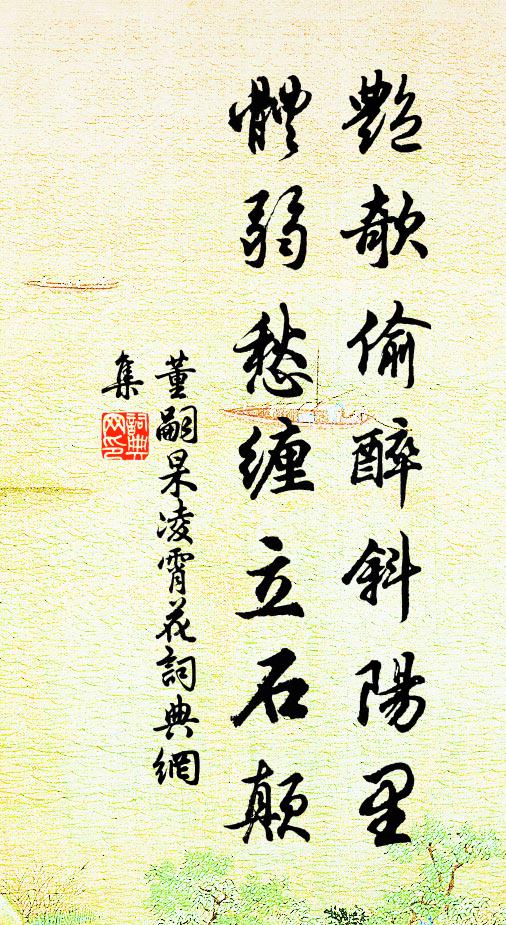 艷欹偷醉斜陽里
體弱愁缠立石顛
董嗣杲凌霄花詞典網
集
詞典网印